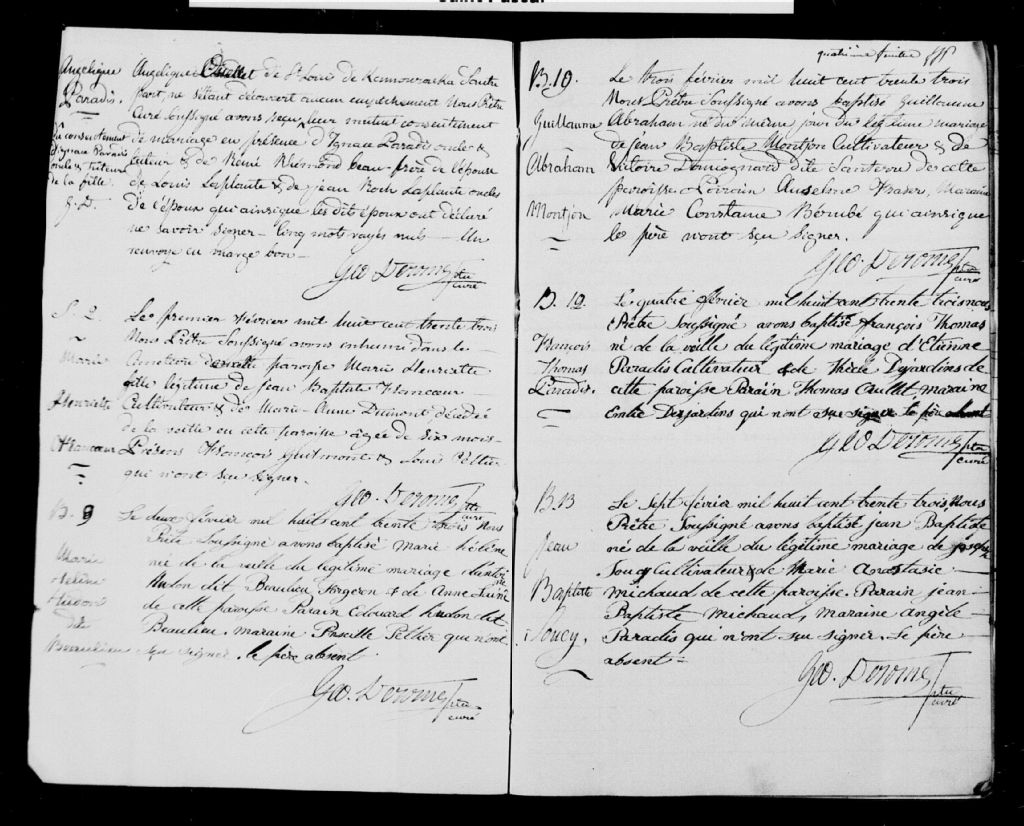 Angelique
Paradis.
du consentement
d'Ignace Paradis
oncle & tuteur
de la fille.
G. D.
Angelique Ouellet de St Louis de Kamouraska d'autre
part, ne s'étant découvert aucun empêchement Nous Prêtre
Curé Soussigné avons reçu leur mutuel consentement
de mariage en présence d'Ignace Paradis oncle &
tuteur & de Rémi Rhémond beau-frère de l'épouse
de Louis Laplante & de Jean Roch Laplante oncles
de l'époux qui ainsi que les dit époux ont déclaré
ne savoir signer — Cinq mots rayés nuls — Un
renvoye en marge bon —
Geo. Derome ptre
curé
S. 2.
Marie
Henriette
Francœur
Le premier Février mil huit cent trente trois
Nous Prêtre Soussigné avons inhumé dans le
Cimetière de cette paroisse Marie Henriette
fille légitime de Jean Baptiste Francœur
Cultivateur & de Marie-Anne Dumont décédée
de la veille en cette paroisse âgée de six mois—
Présens François Guilmont & Louis Peltier
qui n'ont seu signer—
Geo. Derome ptre
curé
B. 9
Marie
Hélène
Hudon
dit
Beaulieu
Le deux février mil huit cent trente trois Nous
Prêtre Soussigné avons baptisé Marie hélène
née de la veille du légitime mariage d'antoine
Hudon dit Beaulieu Forgeron & de Anne
de cette paroisse Parain Edouard hudon dit
Beaulieu, maraine Priscille Peltier qui n'ont
seu signer. le père absent.
Geo. Derome ptre
curé
quatrième feuillet
B. 19.
Guillaume
Abraham
Montjon
Le trois février mil huit cent trente trois
Nous Prêtre Soussigné avons baptisé Guillaume
Abraham né du même jour du légitime mariage
de Jean Baptiste Montjon Cultivateur & de
Victoire dite Santerre de cette
paroisse Parrain Anselme Fraser, Maraine
Marie Constance Bérubé qui ainsi que
le père n'ont seu signer.
Geo Derome ptre
curé
B. 12.
François
Thomas
Paradis.
Le quatre février mil huit cent trente trois nous
Prêtre Soussigné avons baptisé françois Thomas
né de la veille du légitime mariage d'Etienne
Paradis Cultivateur & de Thècle Dejardins de
cette paroisse Parain Thomas Ouellet maraine
Emilie Desjardins qui n'ont seu signer le père absent
Geo Derome ptre
curé
B. 13
Jean
Baptiste
Soucy.
Le Sept février mil huit cent trente trois, Nous
Prêtre Soussigné avons baptisé jean Baptiste
né de la veille du légitime mariage de joseph
Soucy Cultivateur & de Marie Anastasie —
michaud de cette paroisse. Parain jean—
Baptiste michaud, maraine angèle—
Paradis qui n'ont seu signer. Le père
absent =
Geo. Derome ptre
curé